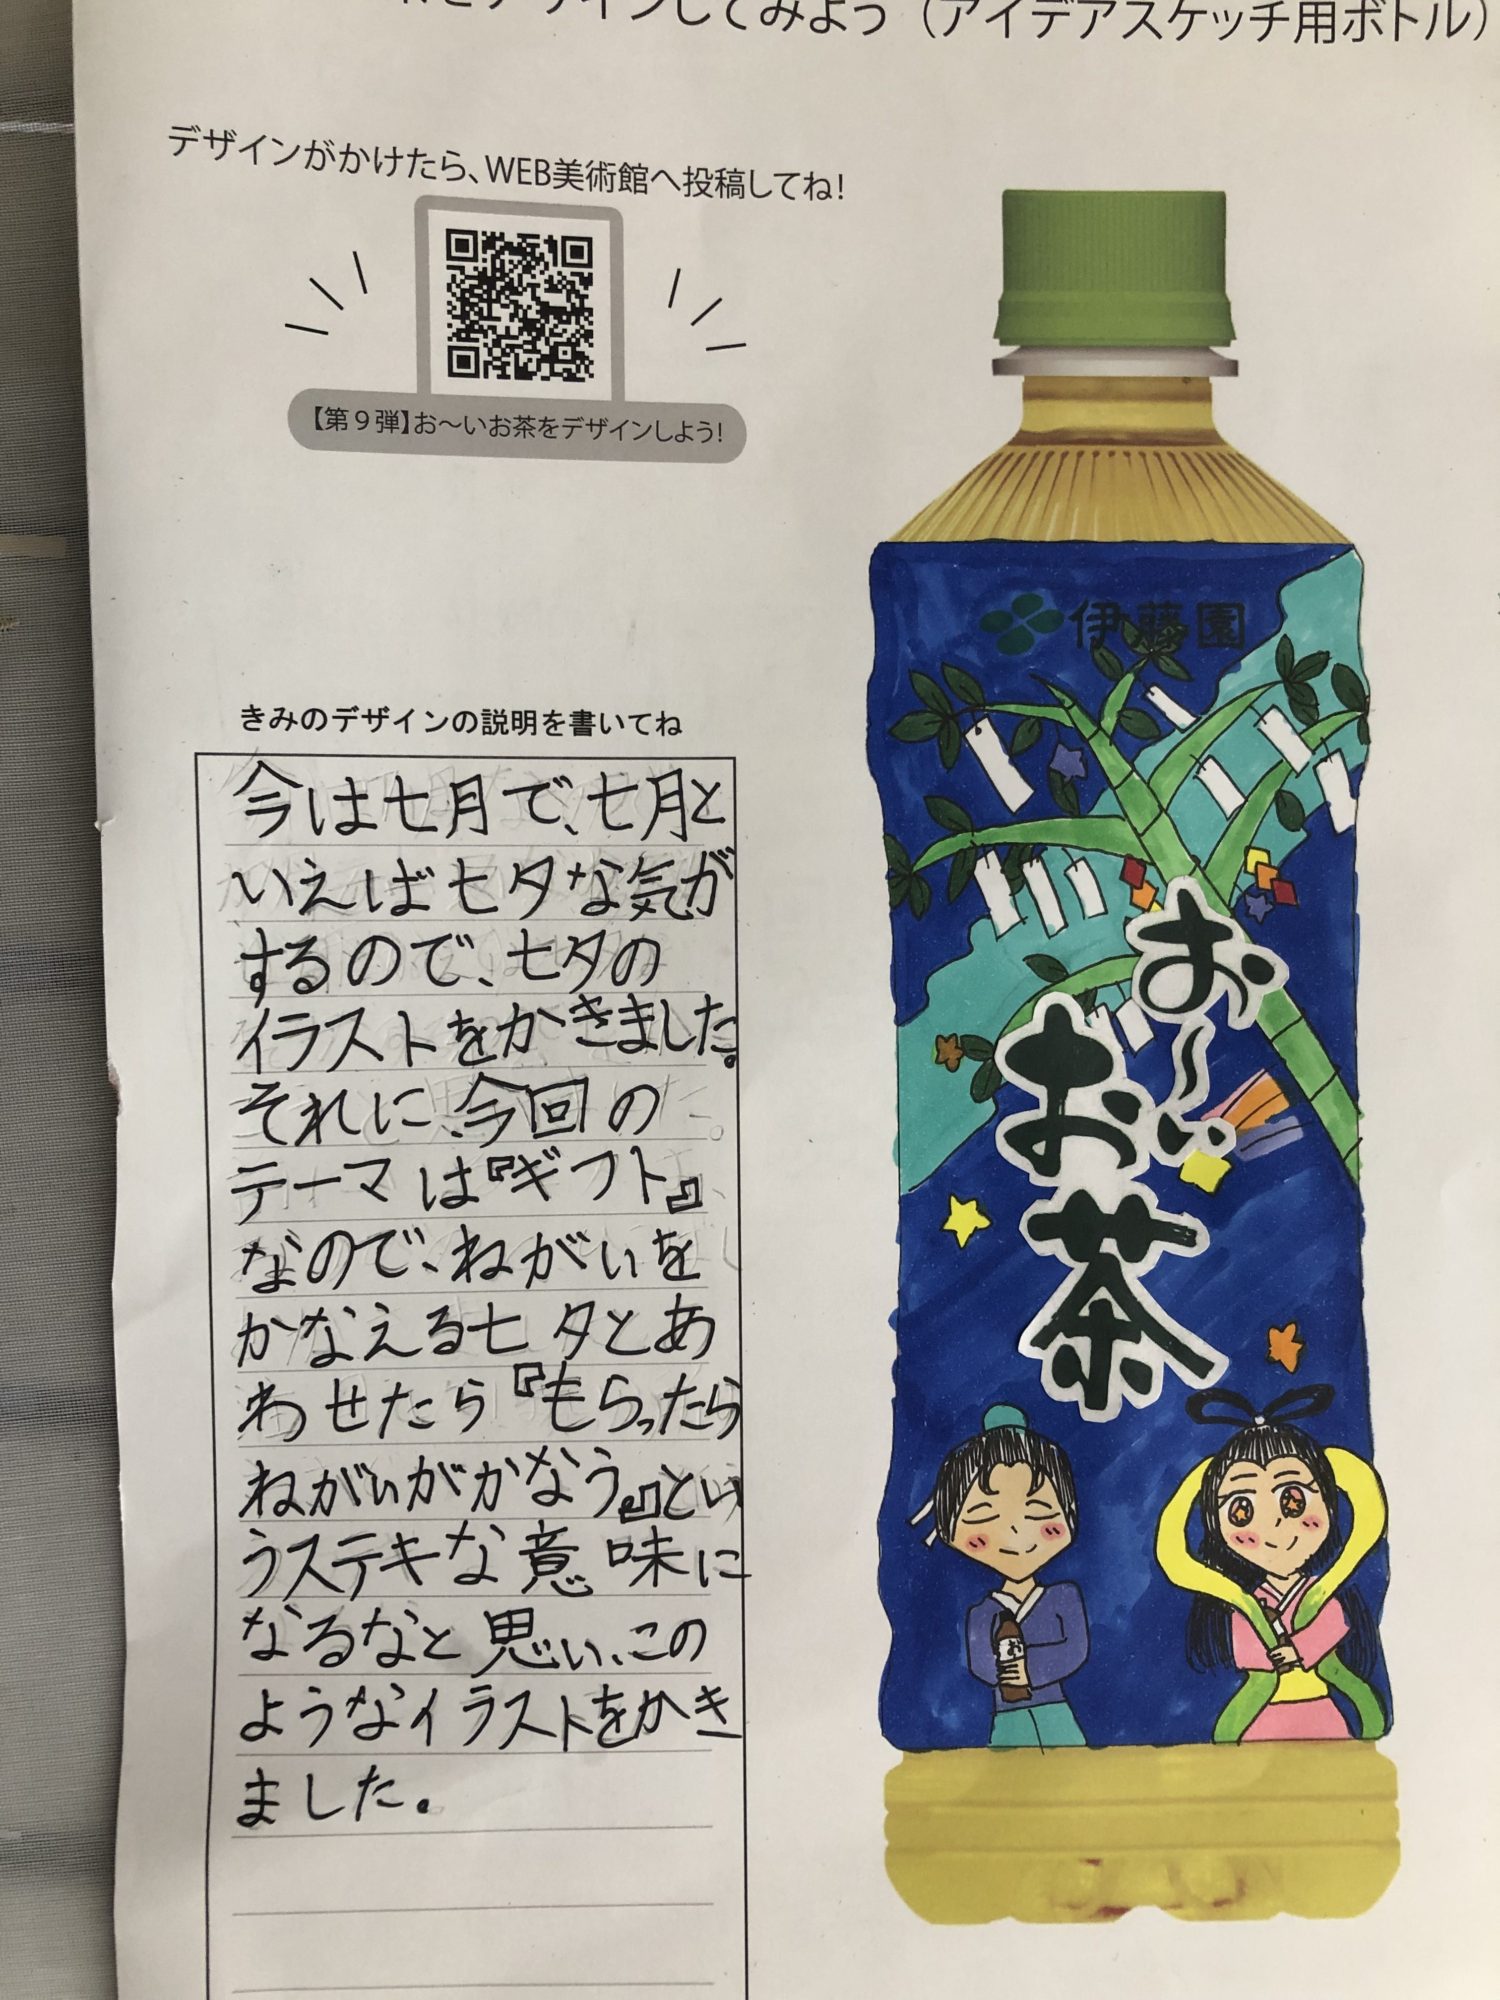 をデザインしてみよう（アイデアスケッチ用ボトル）
デザインがかけたら、WEB美術館へ投稿してね！
【第９弾】お～いお茶をデザインしよう！
きみのデザインの説明を書いてね
今は七月で、七月と
いえば七夕な気が
するので、七夕の
イラストをかきました。
それに、今回の
テーマは『ギフト』
なので、ねがいを
かなえる七夕とあ
わせたら『もらったら
ねがいがかなう』とい
うステキな意味に
なるなと思い、この
ようなイラストをかき
ました。
伊藤園
お～い
お茶
お